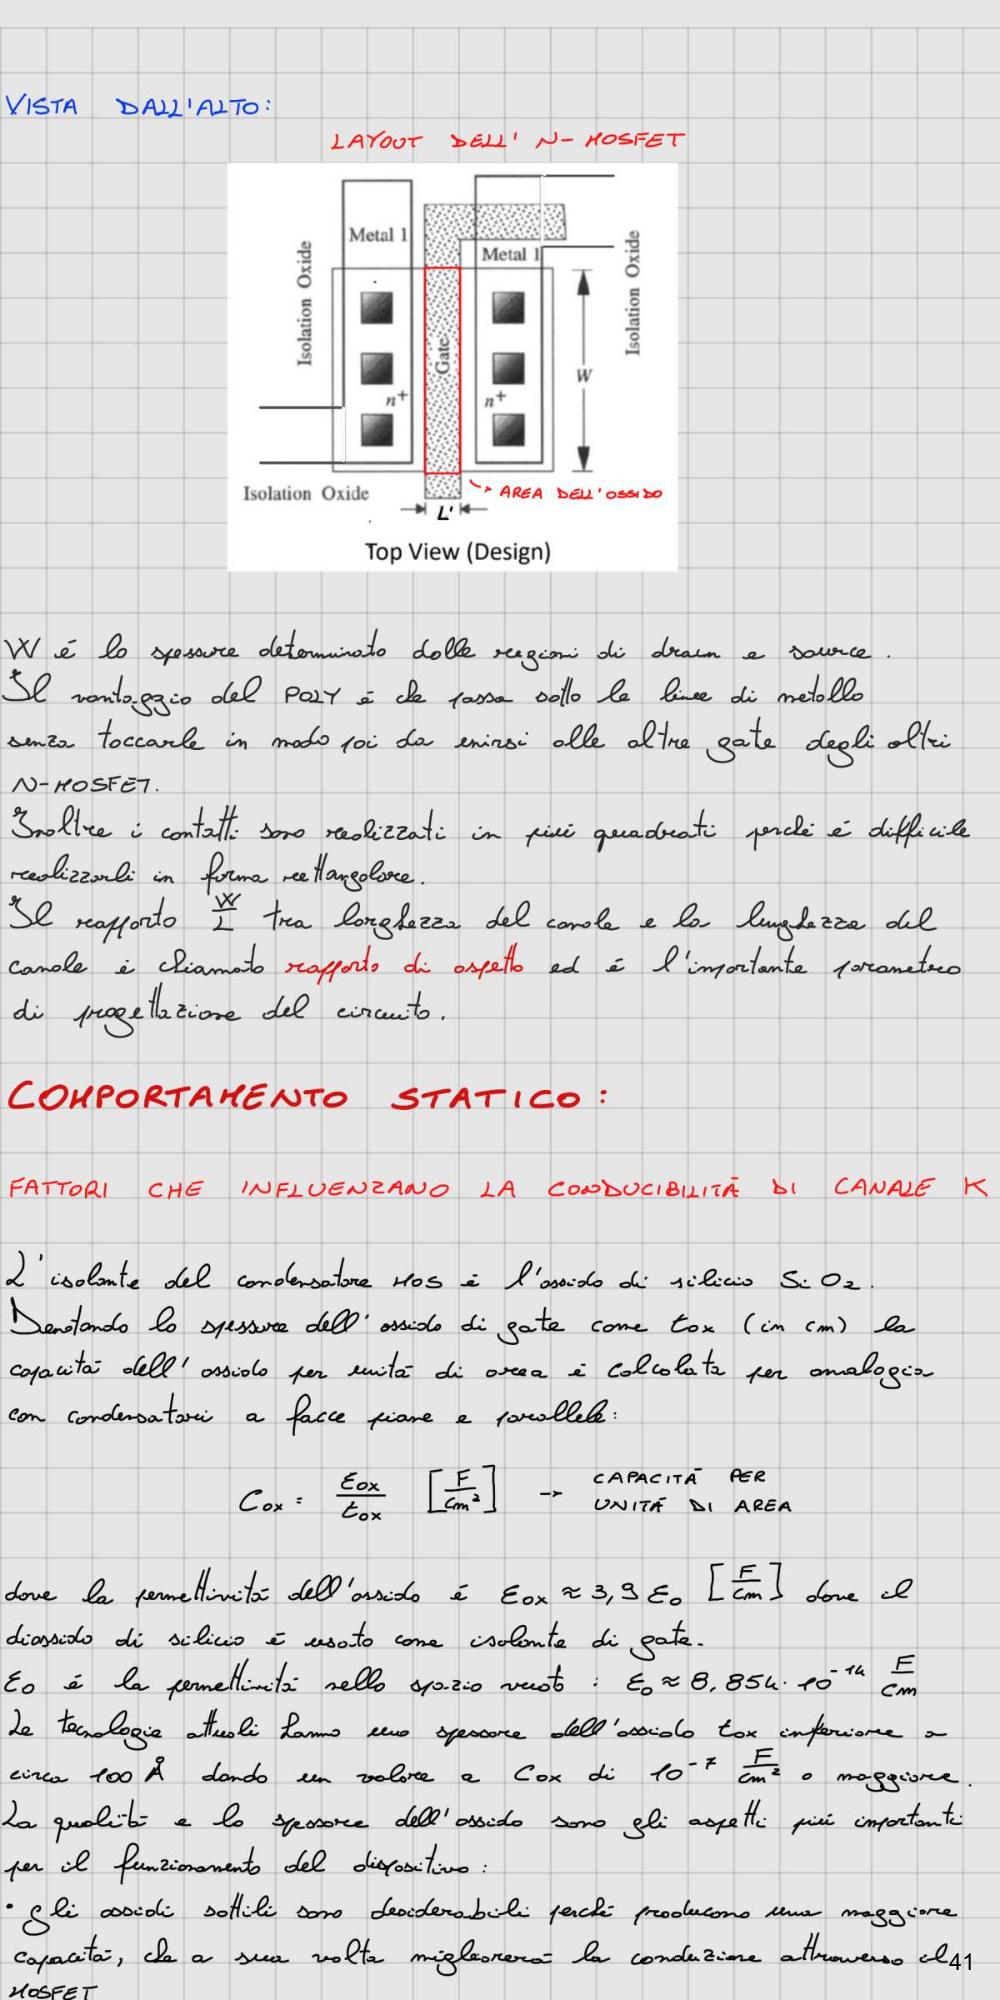 VISTA DALL'ALTO:
LAYOUT DELL' N-MOSFET
Metal 1
Metal 1
Isolation Oxide
Isolation Oxide
Gate
W
n+
n+
Isolation Oxide
AREA DELL'OSSIDO
L'
Top View (Design)
W é lo spessore determinato dalle regioni di drain e source.
Il vantaggio del POLY è che passa sotto le linee di metallo
senza toccarle in modo poi da unirsi alle altre gate degli altri
N-MOSFET.
Inoltre i contatti sono realizzati in più quadrati perché é difficile
realizzarli in forma rettangolare.
Il rapporto W/L tra larghezza del canale e la lunghezza del
canale è chiamato rapporto di aspetto ed é l'importante parametro
di progettazione del circuito.
COMPORTAMENTO STATICO:
FATTORI CHE INFLUENZANO LA CONDUCIBILITÀ DI CANALE K
L'isolante del condensatore MOS è l'ossido di silicio SiO₂.
Denotando lo spessore dell'ossido di gate come tox (in cm) la
capacità dell'ossido per unità di area è calcolata per analogia
con condensatori a facce piane e parallele:
Cox = εox/tox [F/cm²] -> CAPACITÀ PER
UNITÁ DI AREA
dove la permettività dell'ossido é εox ≈ 3,9 ε₀ [F/cm] dove il
diossido di silicio è usato come isolante di gate.
ε₀ é la permettività nello spazio vuoto : ε₀ ≈ 8,854·10⁻¹⁴ F/cm
Le tecnologie attuali hanno uno spessore dell'ossido tox inferiore a
circa 100 Å dando un valore a Cox di 10⁻⁷ F/cm² o maggiore.
La qualità e lo spessore dell'ossido sono gli aspetti più importanti
per il funzionamento del dispositivo:
• gli ossidi sottili sono desiderabili perché producono una maggiore
capacità, che a sua volta migliorerà la conduzione attraverso il
MOSFET
41